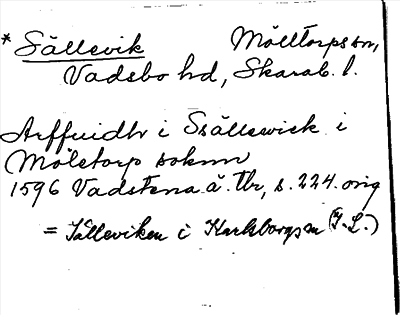 * Sällevik Mölltorps sn,
Vadsbo hd, Skarab. l.
Arffuidh i Ssällewick i
Möletorp soknn
1596 Vadstena ä. tbr, s. 224. orig
= Sälleviken i Karlsborgs sn (I. L.)